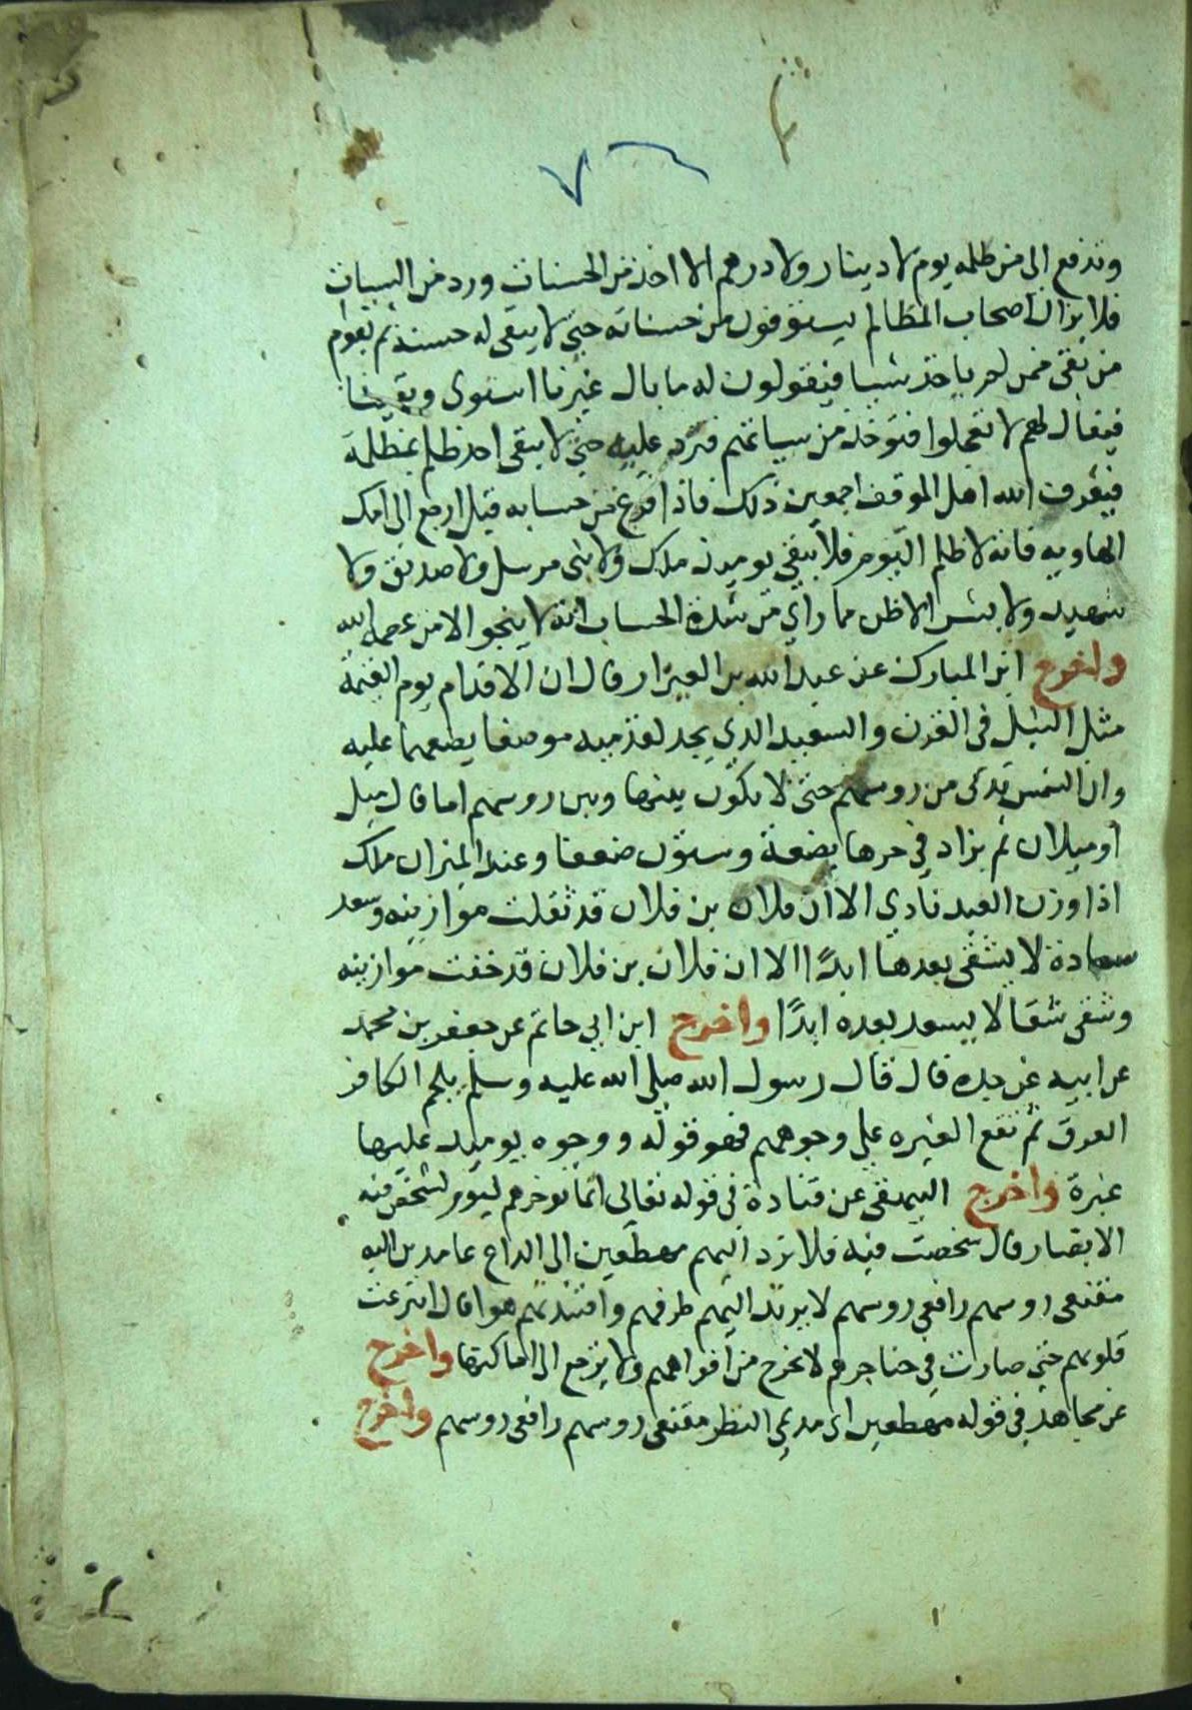 وتدفع الى من ظلمه يوم لا دينار ولا درهم الا اخذ من الحسنات ورد من السيات
فلا يزال اصحاب المظالم يستوفون من حسناته حتى لا يبقى له حسنة ثم يقوم
من بقى ممن لم ياخذ شيا فيقولون له ما بال غيرنا استوفى وبقينا
فيقال لهم لا تعجلوا فتوخذ من سياتهم فترد عليه حتى لا يبقى احد ظلم بمظلمة
فيعرف الله اهل الموقف اجمعين ذلك فاذا فرغ من حسابه قيل ارجع الى امك
الهاويه فانه لا ظلم اليوم فلا يبقى يوميذ ملك ولا نبى مرسل ولا صديق ولا
شهيد ولا بشر الا ظن مما راى من شدة الحساب انه لا ينجو الا من عصمه الله
واخرج ابن المبارك عن عبد الله بن العيزار قال ان الاقدام يوم القيمة
مثل النبل فى القرن والسعيد الذي يجد لقدميه موضعا يضعهما عليه
وان الشمس تدنى من روسهم حتى لا يكون بينها وبين روسهم اما قال ميل
او ميلان ثم يزاد في حرها بضعة وستون ضعفا وعند الميزان ملك
اذا وزن العبد نادي الا ان فلان بن فلان قد ثقلت موازينه وسعد
سعادة لا يشقى بعدها ابدًا الا ان فلان بن فلان قد خفت موازينه
وشقى شقا لا يسعد بعده ابدًا واخرج ابن ابي حاتم عن جعفر بن محمد
عن ابيه عن جده قال قال رسول الله صلى الله عليه وسلم يلجم الكافر
العرق ثم تقع الغبره علي وجوههم فهو قوله ووجوه يوميذ عليها
غبرة واخرج البيهقى عن قتادة فى قوله تعالى انما نوخرهم ليوم تشخص فيه
الابصار قال شخصت فيه فلا ترد اليهم مهطعين الى الداع عامدين اليه
مقنعى روسهم رافعى روسهم لا يرتد اليهم طرفهم وافئدتهم هوا قال انتزعت
قلوبهم حتى صارت في حناجرهم لا تخرج من افواههم ولا يرجع الى اماكنها واخرج
عن مجاهد فى قوله مهطعين اى مديمي النظر مقنعى روسهم رافعى روسهم واخرج